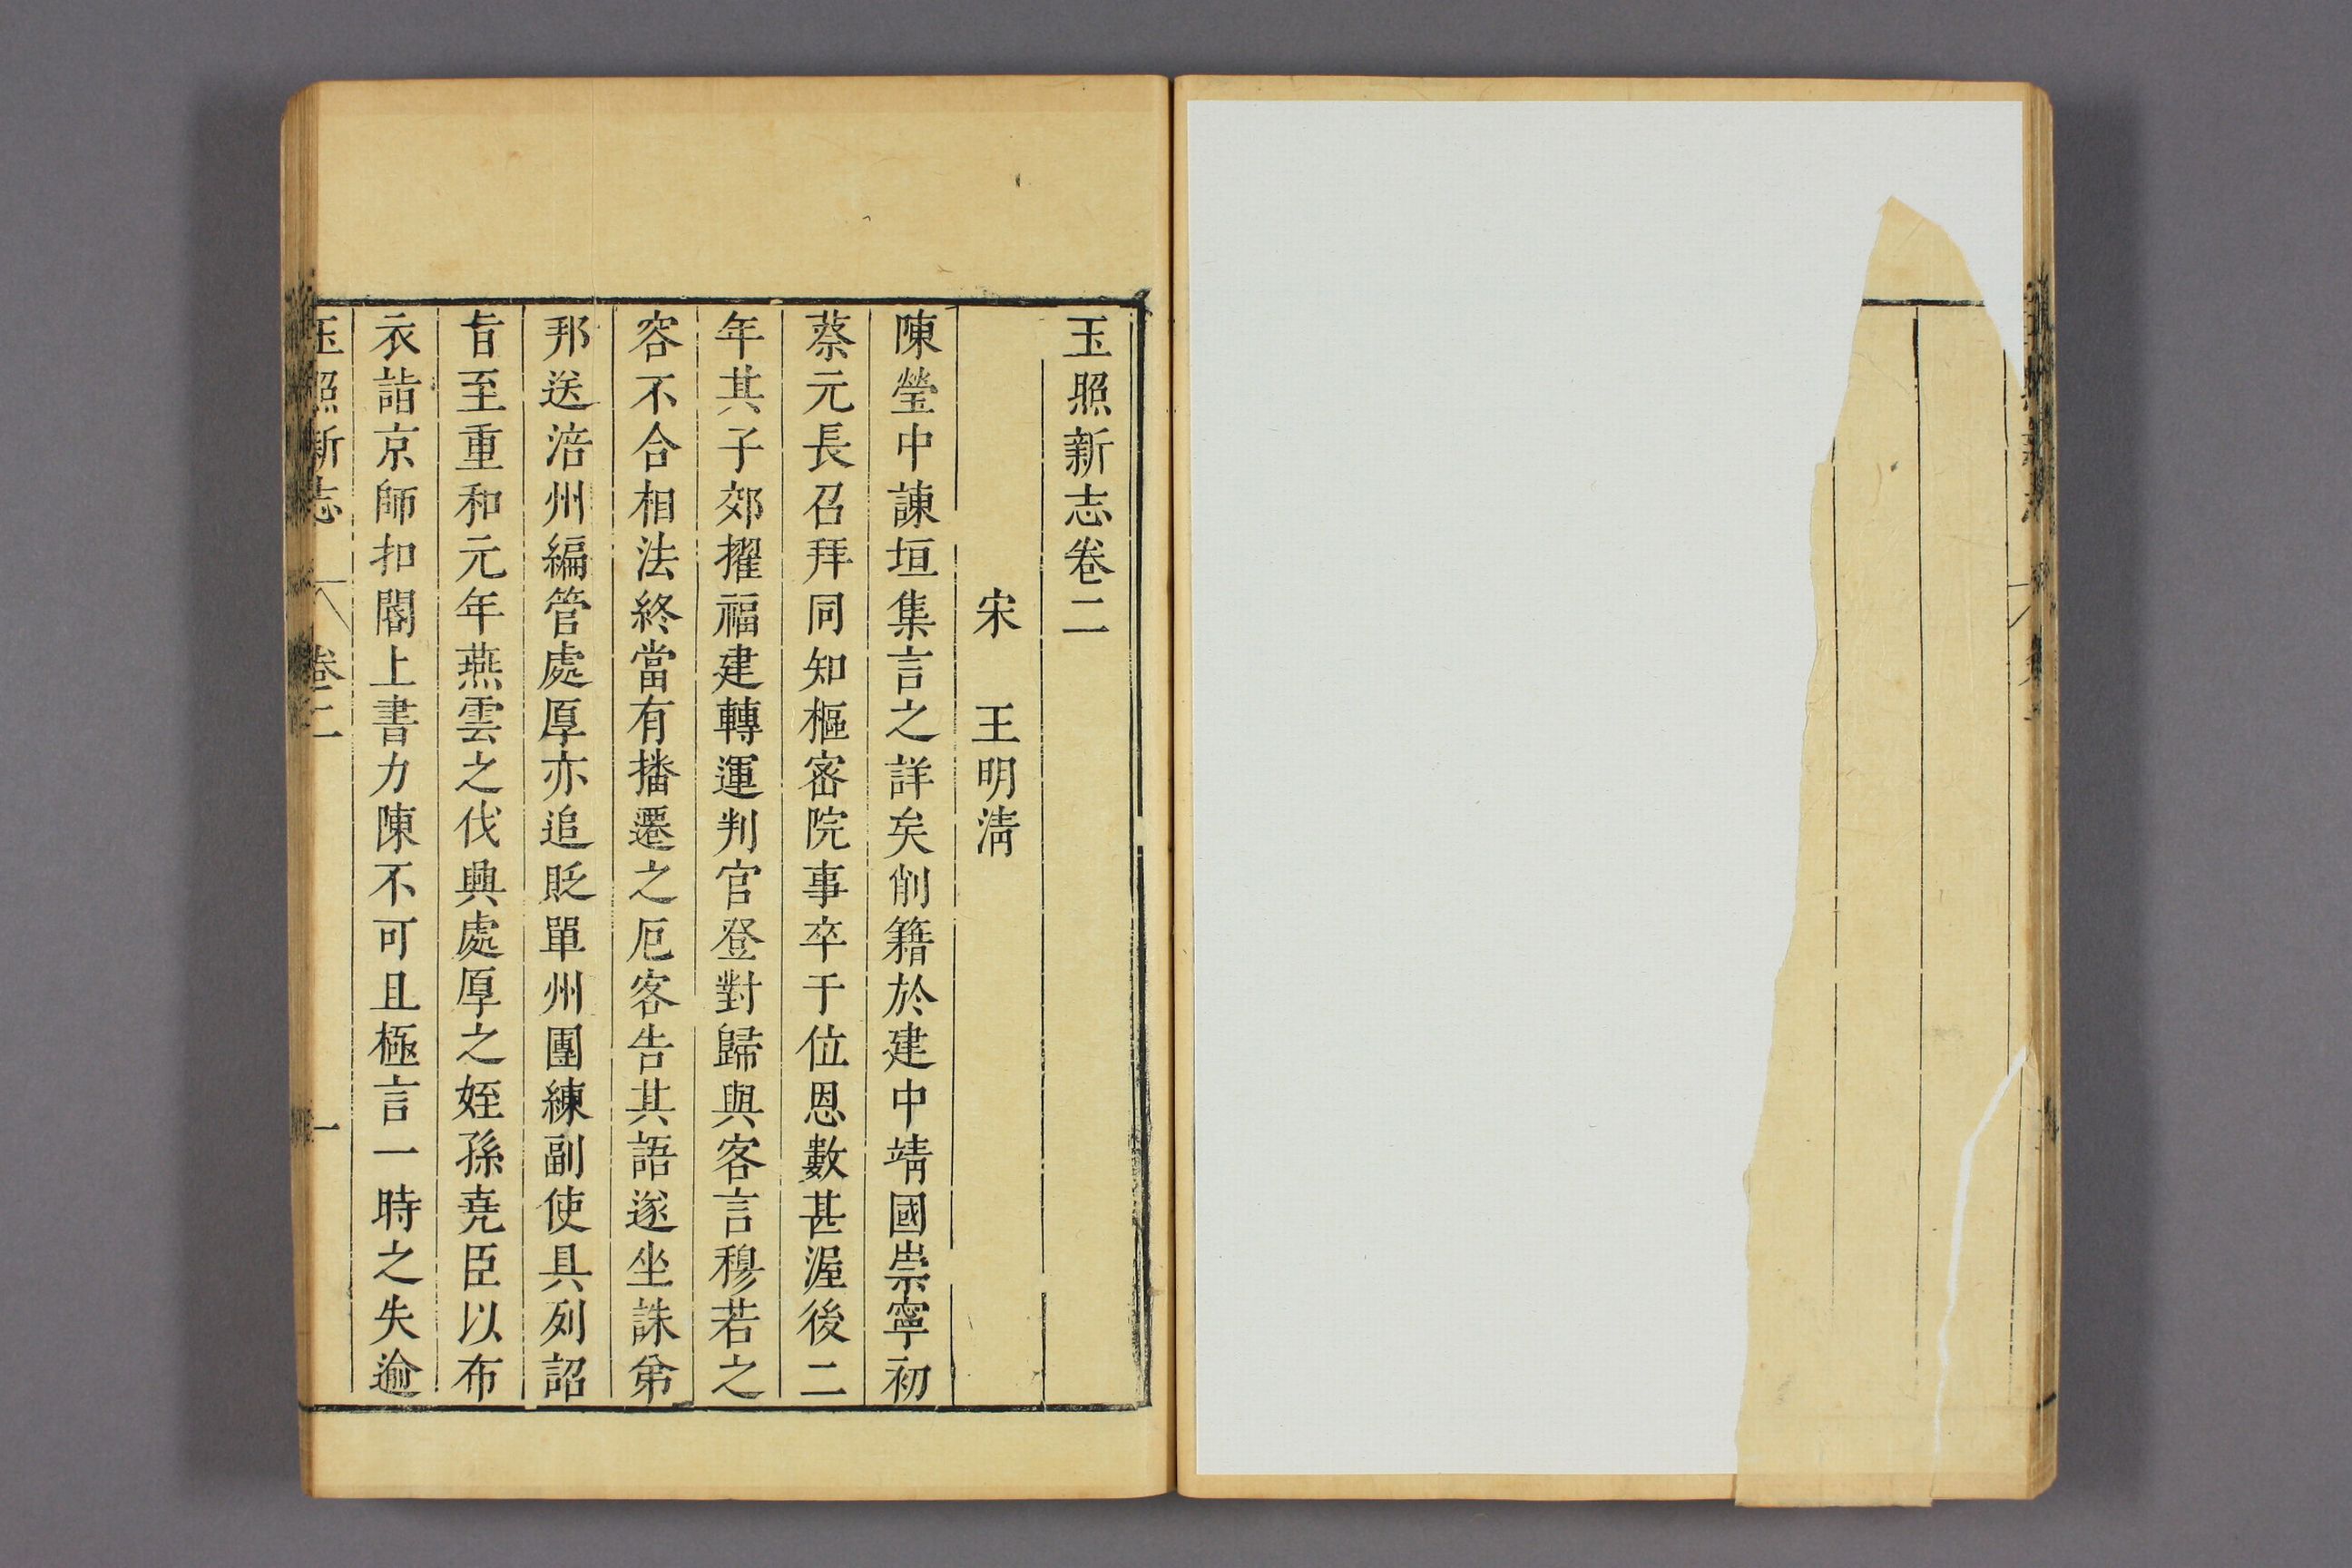 玉照新志卷二
宋　王明淸
陳瑩中諫垣集言之詳矣削籍於建中靖國崇寧初
蔡元長召拜同知樞密院事卒于位恩數甚渥後二
年其子郊擢福建轉運判官登對歸與客言穆若之
容不合相法終當有播遷之厄客告其語遂坐誅弟
邦送涪州編管處厚亦追貶單州團練副使具列詔
旨至重和元年燕雲之伐興處厚之姪孫堯臣以布
衣詣京師扣閽上書力陳不可且極言一時之失逾
玉照新志　卷二　一